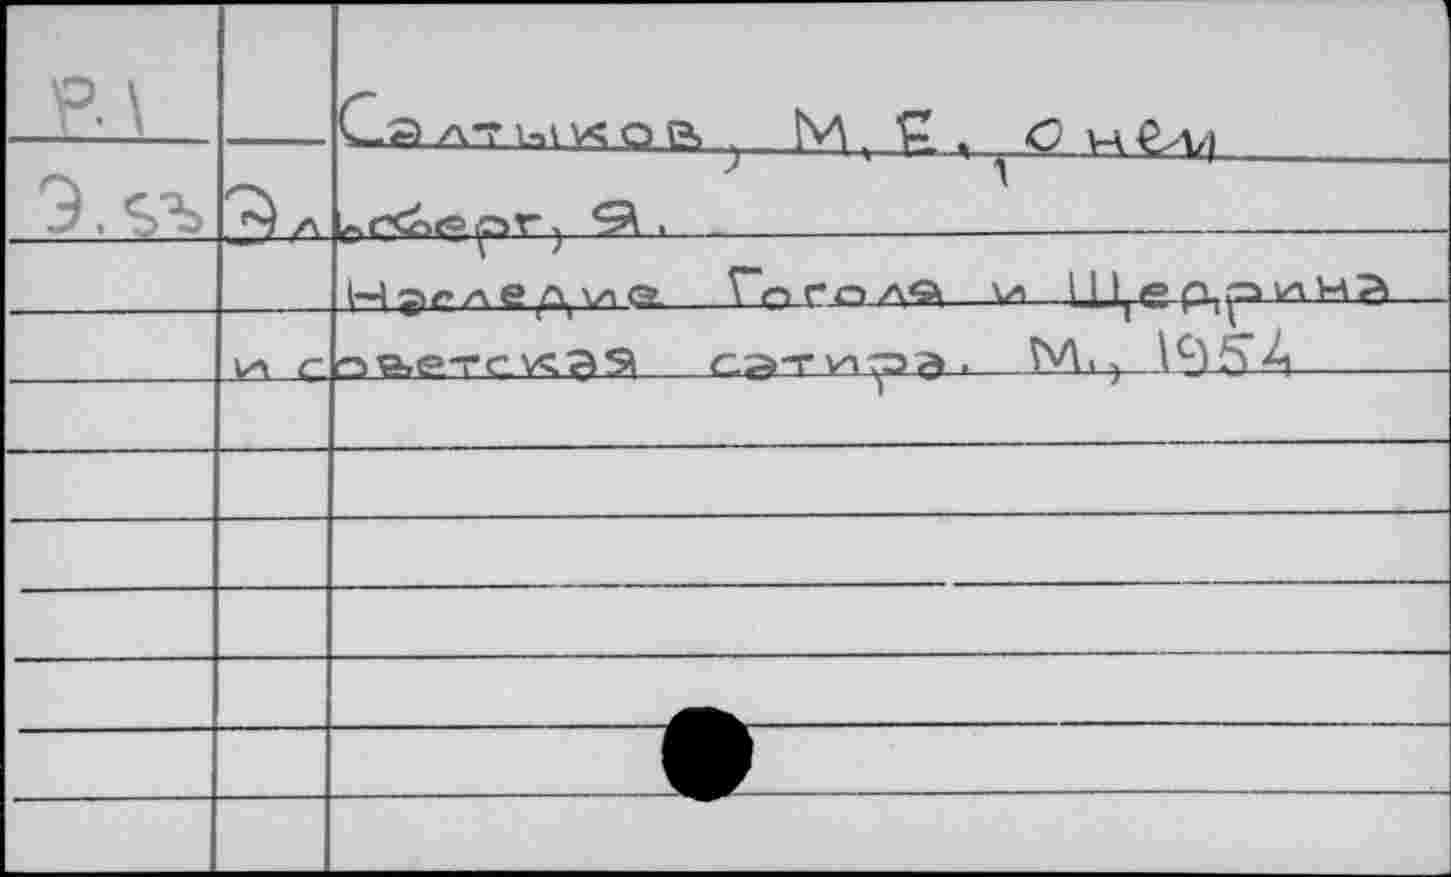 Р.1 Салтыков, М. Е., о нем
Э.53 Эльсберг, Я.
Наследие Гоголя и Щедрина
и советская сатира. М., 1954